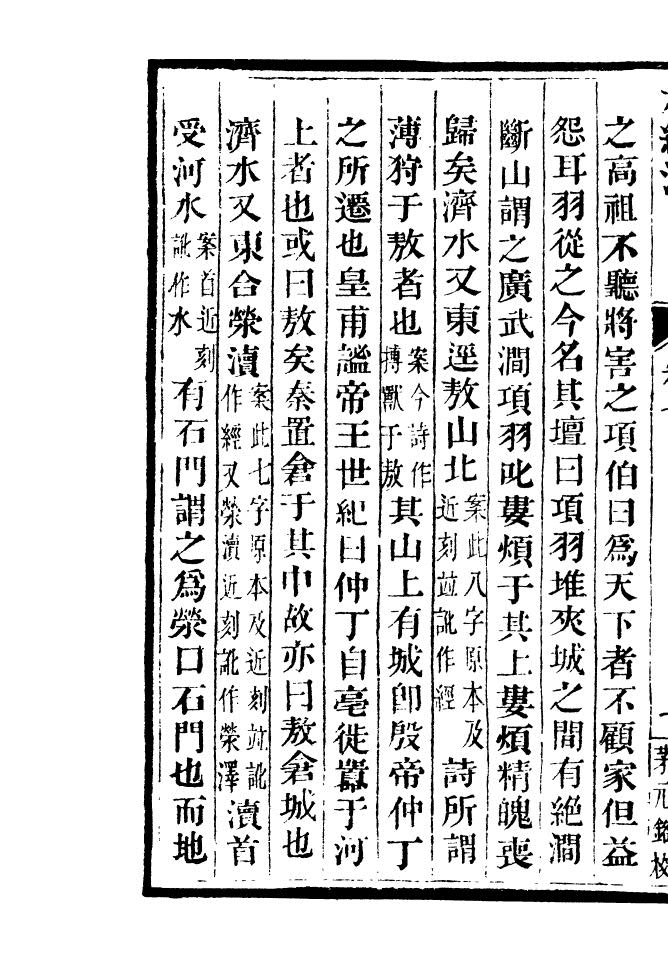 之高祖不聽將害之項伯曰爲天下者不顧家但益
怨耳羽從之今名其壇曰項羽堆夾城之間有絶澗
斷山謂之廣武澗項羽叱婁煩于其上婁煩精魄喪
歸矣濟水又東逕敖山北案此八字原本及近刻竝訛作經詩所謂
薄狩于敖者也案今詩作搏獸于敖其山上有城卽殷帝仲丁
之所遷也皇甫謐帝王世紀曰仲丁自亳徙囂于河
上者也或曰敖矣秦置倉于其中故亦曰敖倉城也
濟水又東合滎瀆案此七字原本及近刻竝訛作經又滎瀆近刻訛作滎澤瀆首
受河水案首近刻訛作水有石門謂之爲滎口石門也而地